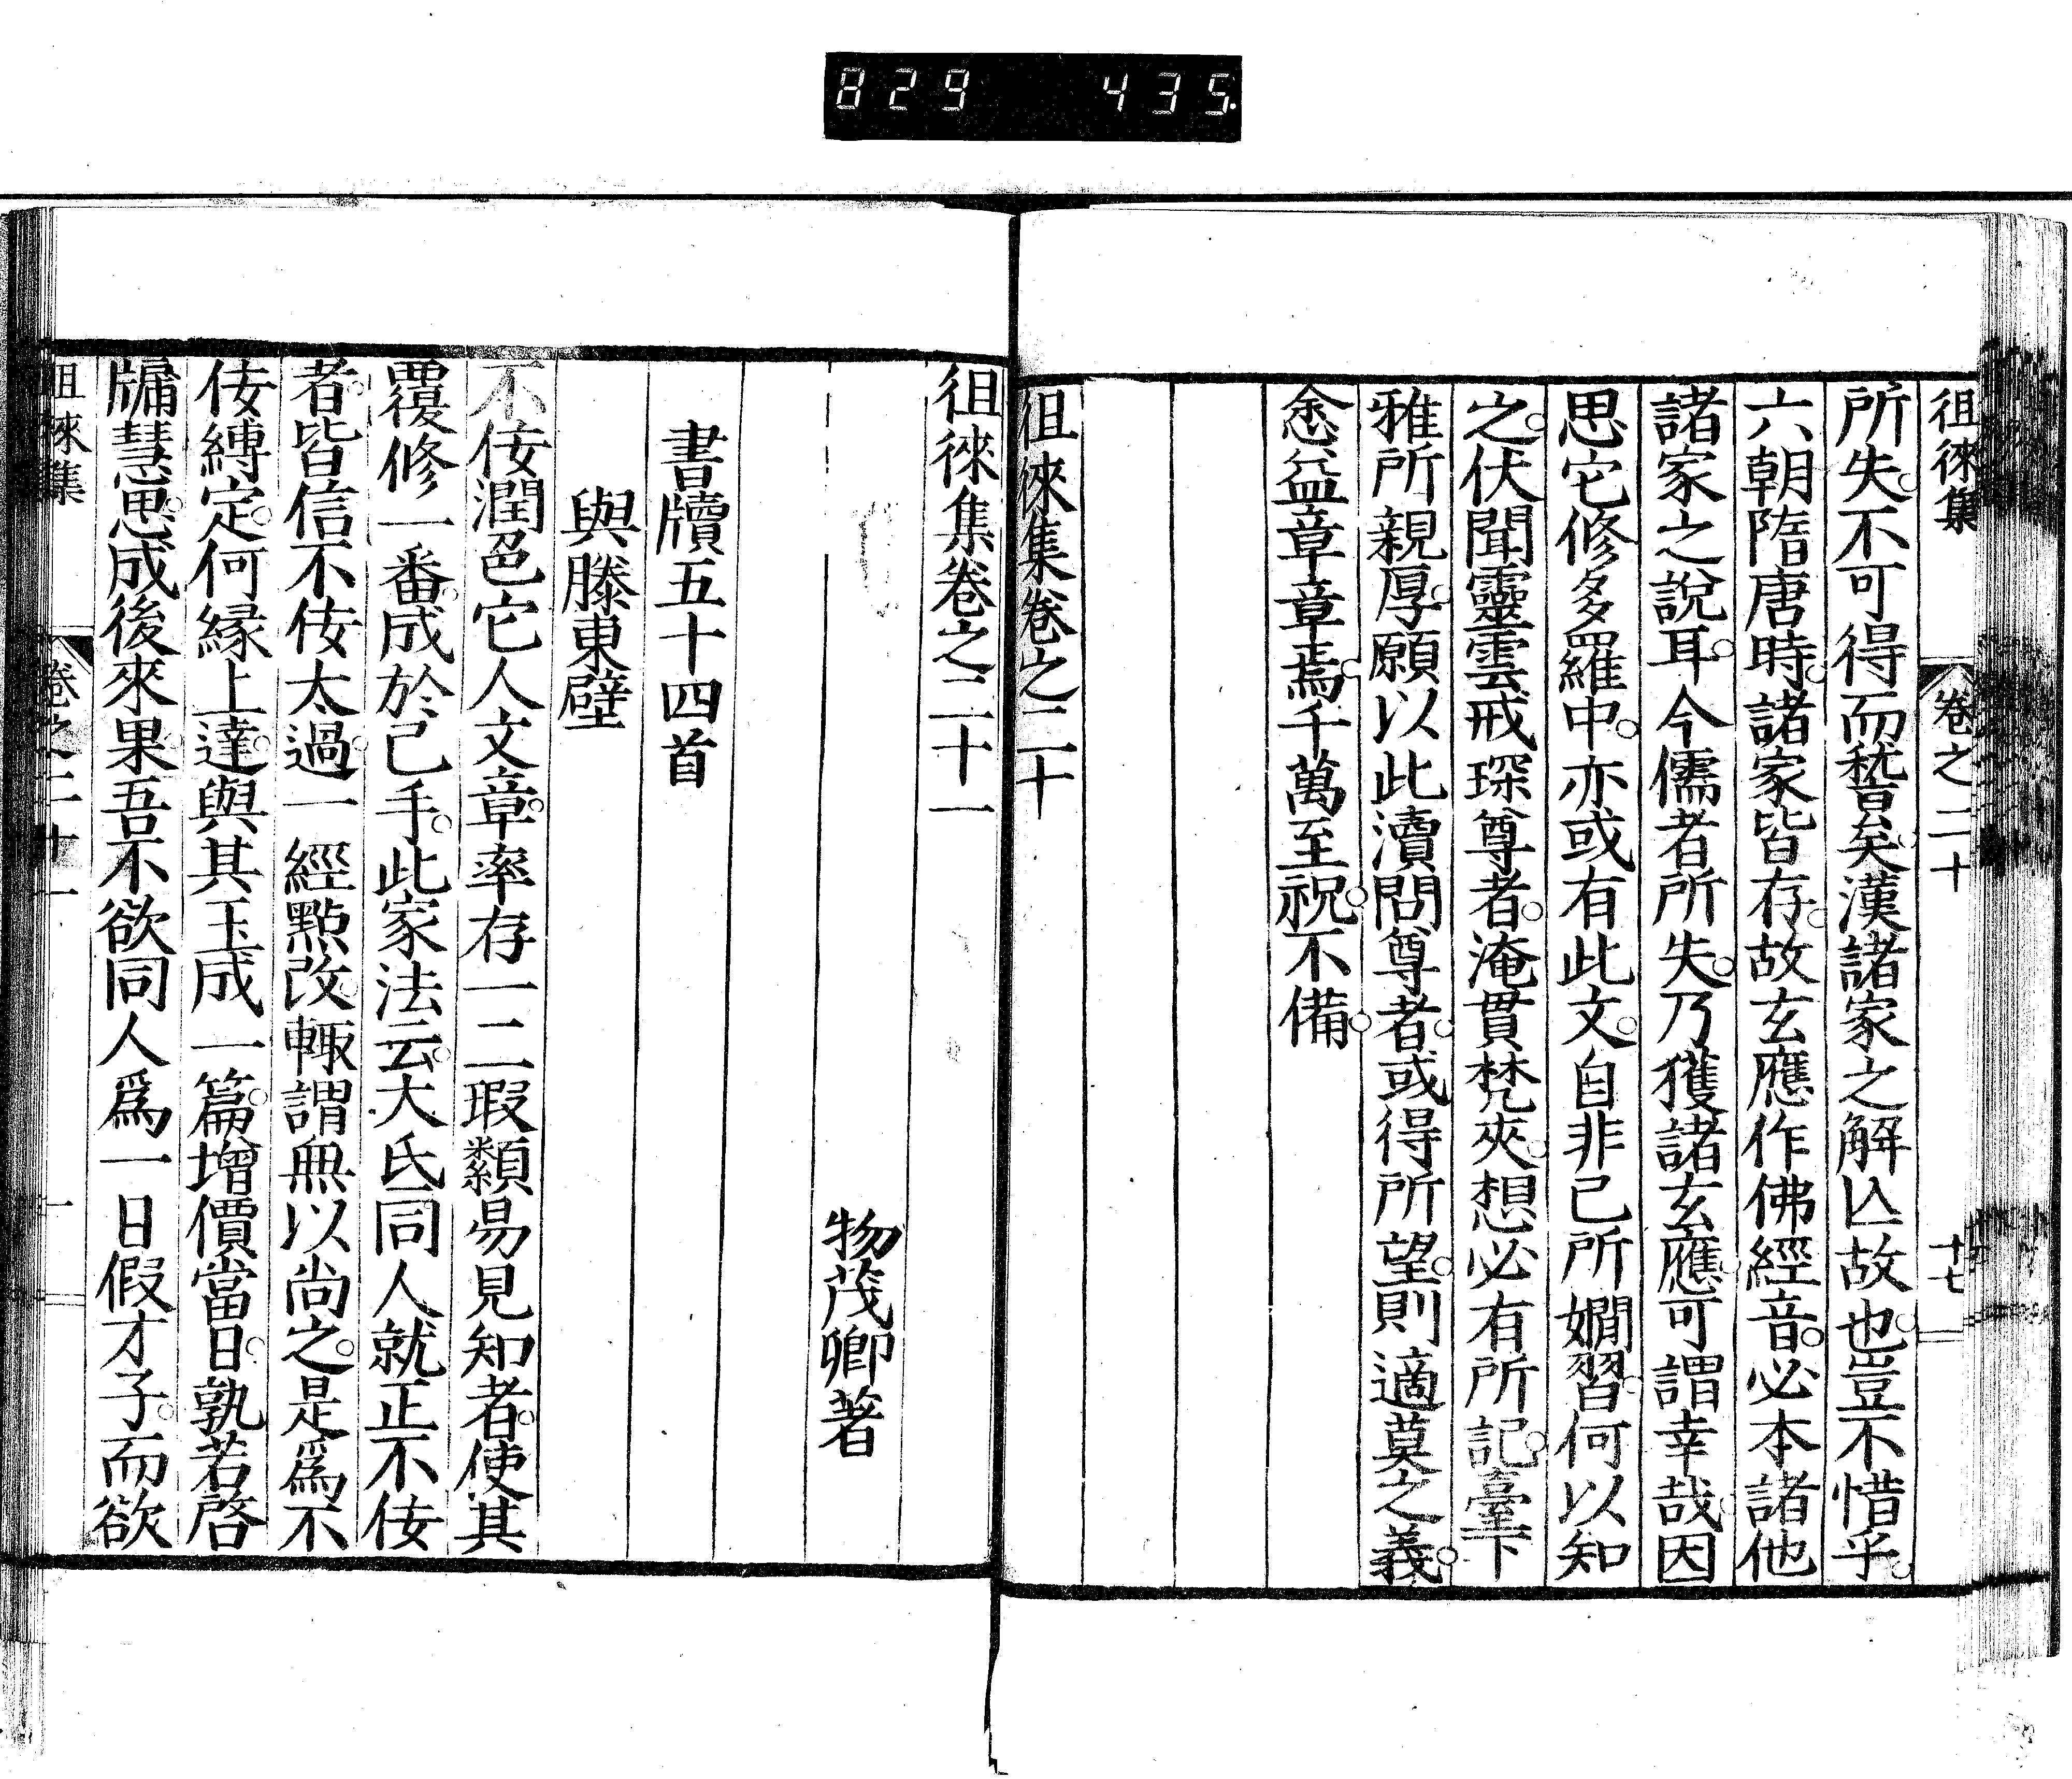 829 435
徂徠集 卷之二十 十七
所失不可得而稽矣漢諸家之解亾故也豈不惜乎
六朝隋唐時諸家皆存故玄應作佛經音必本諸他
諸家之說耳今儒者所失乃獲諸玄應可謂幸哉因
思它修多羅中亦或有此文自非己所嫺習何以知
之伏聞靈雲戒琛尊者淹貫梵夾想必有所記臺下
雅所親厚願以此瀆問尊者或得所望則適莫之義
悆益章章焉千萬至祝不備
徂徠集卷之二十
徂徠集卷之二十一
物茂卿著
書牘五十四首
與滕東壁
不佞潤色它人文章率存一二瑕纇易見知者使其
覆修一番成於己手此家法云大氐同人就正不佞
者皆信不佞太過一經點改輙謂無以尚之是爲不
佞縛定何緣上達與其玉成一篇增價當日孰若啓
牖慧思成後來果吾不欲同人爲一日假才子而欲
徂徠集 卷之二十一 一